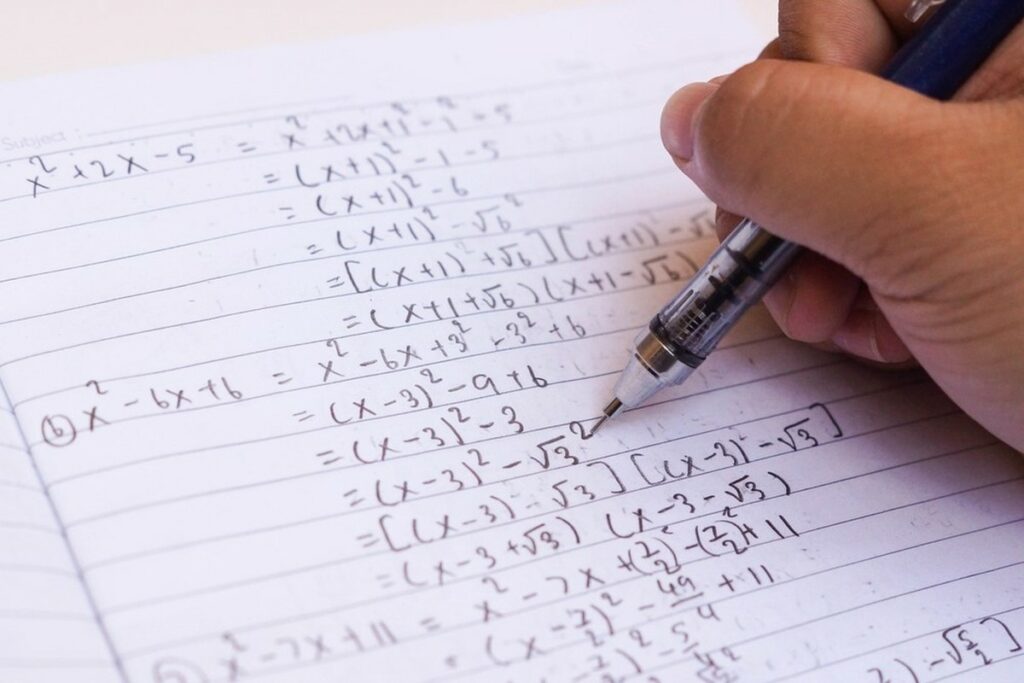 Subject :
x² + 2x - 5 = x² + 2x + 1² - 1² - 5
= (x+1)² - 1 - 5
= (x+1)² - 6
= (x+1)² - √6²
= [(x+1) + √6] [(x+1) - √6
= (x+1+√6) (x+1-√6)
(b) x² - 6x + 6 = x² - 6x + 3² - 3² + 6
= (x-3)² - 9 + 6
= (x-3)² - 3
= (x-3)² - √3²
= [(x-3) - √3] [(x-3) - √3]
= (x-3+√3) (x-3-√3)
x² - 7x + 11 = x² - 7x + (7/2)² - (7/2)² + 11
(x - 7/2)² - 49/4 + 11
/2)² - 5/4
) - √5/2]